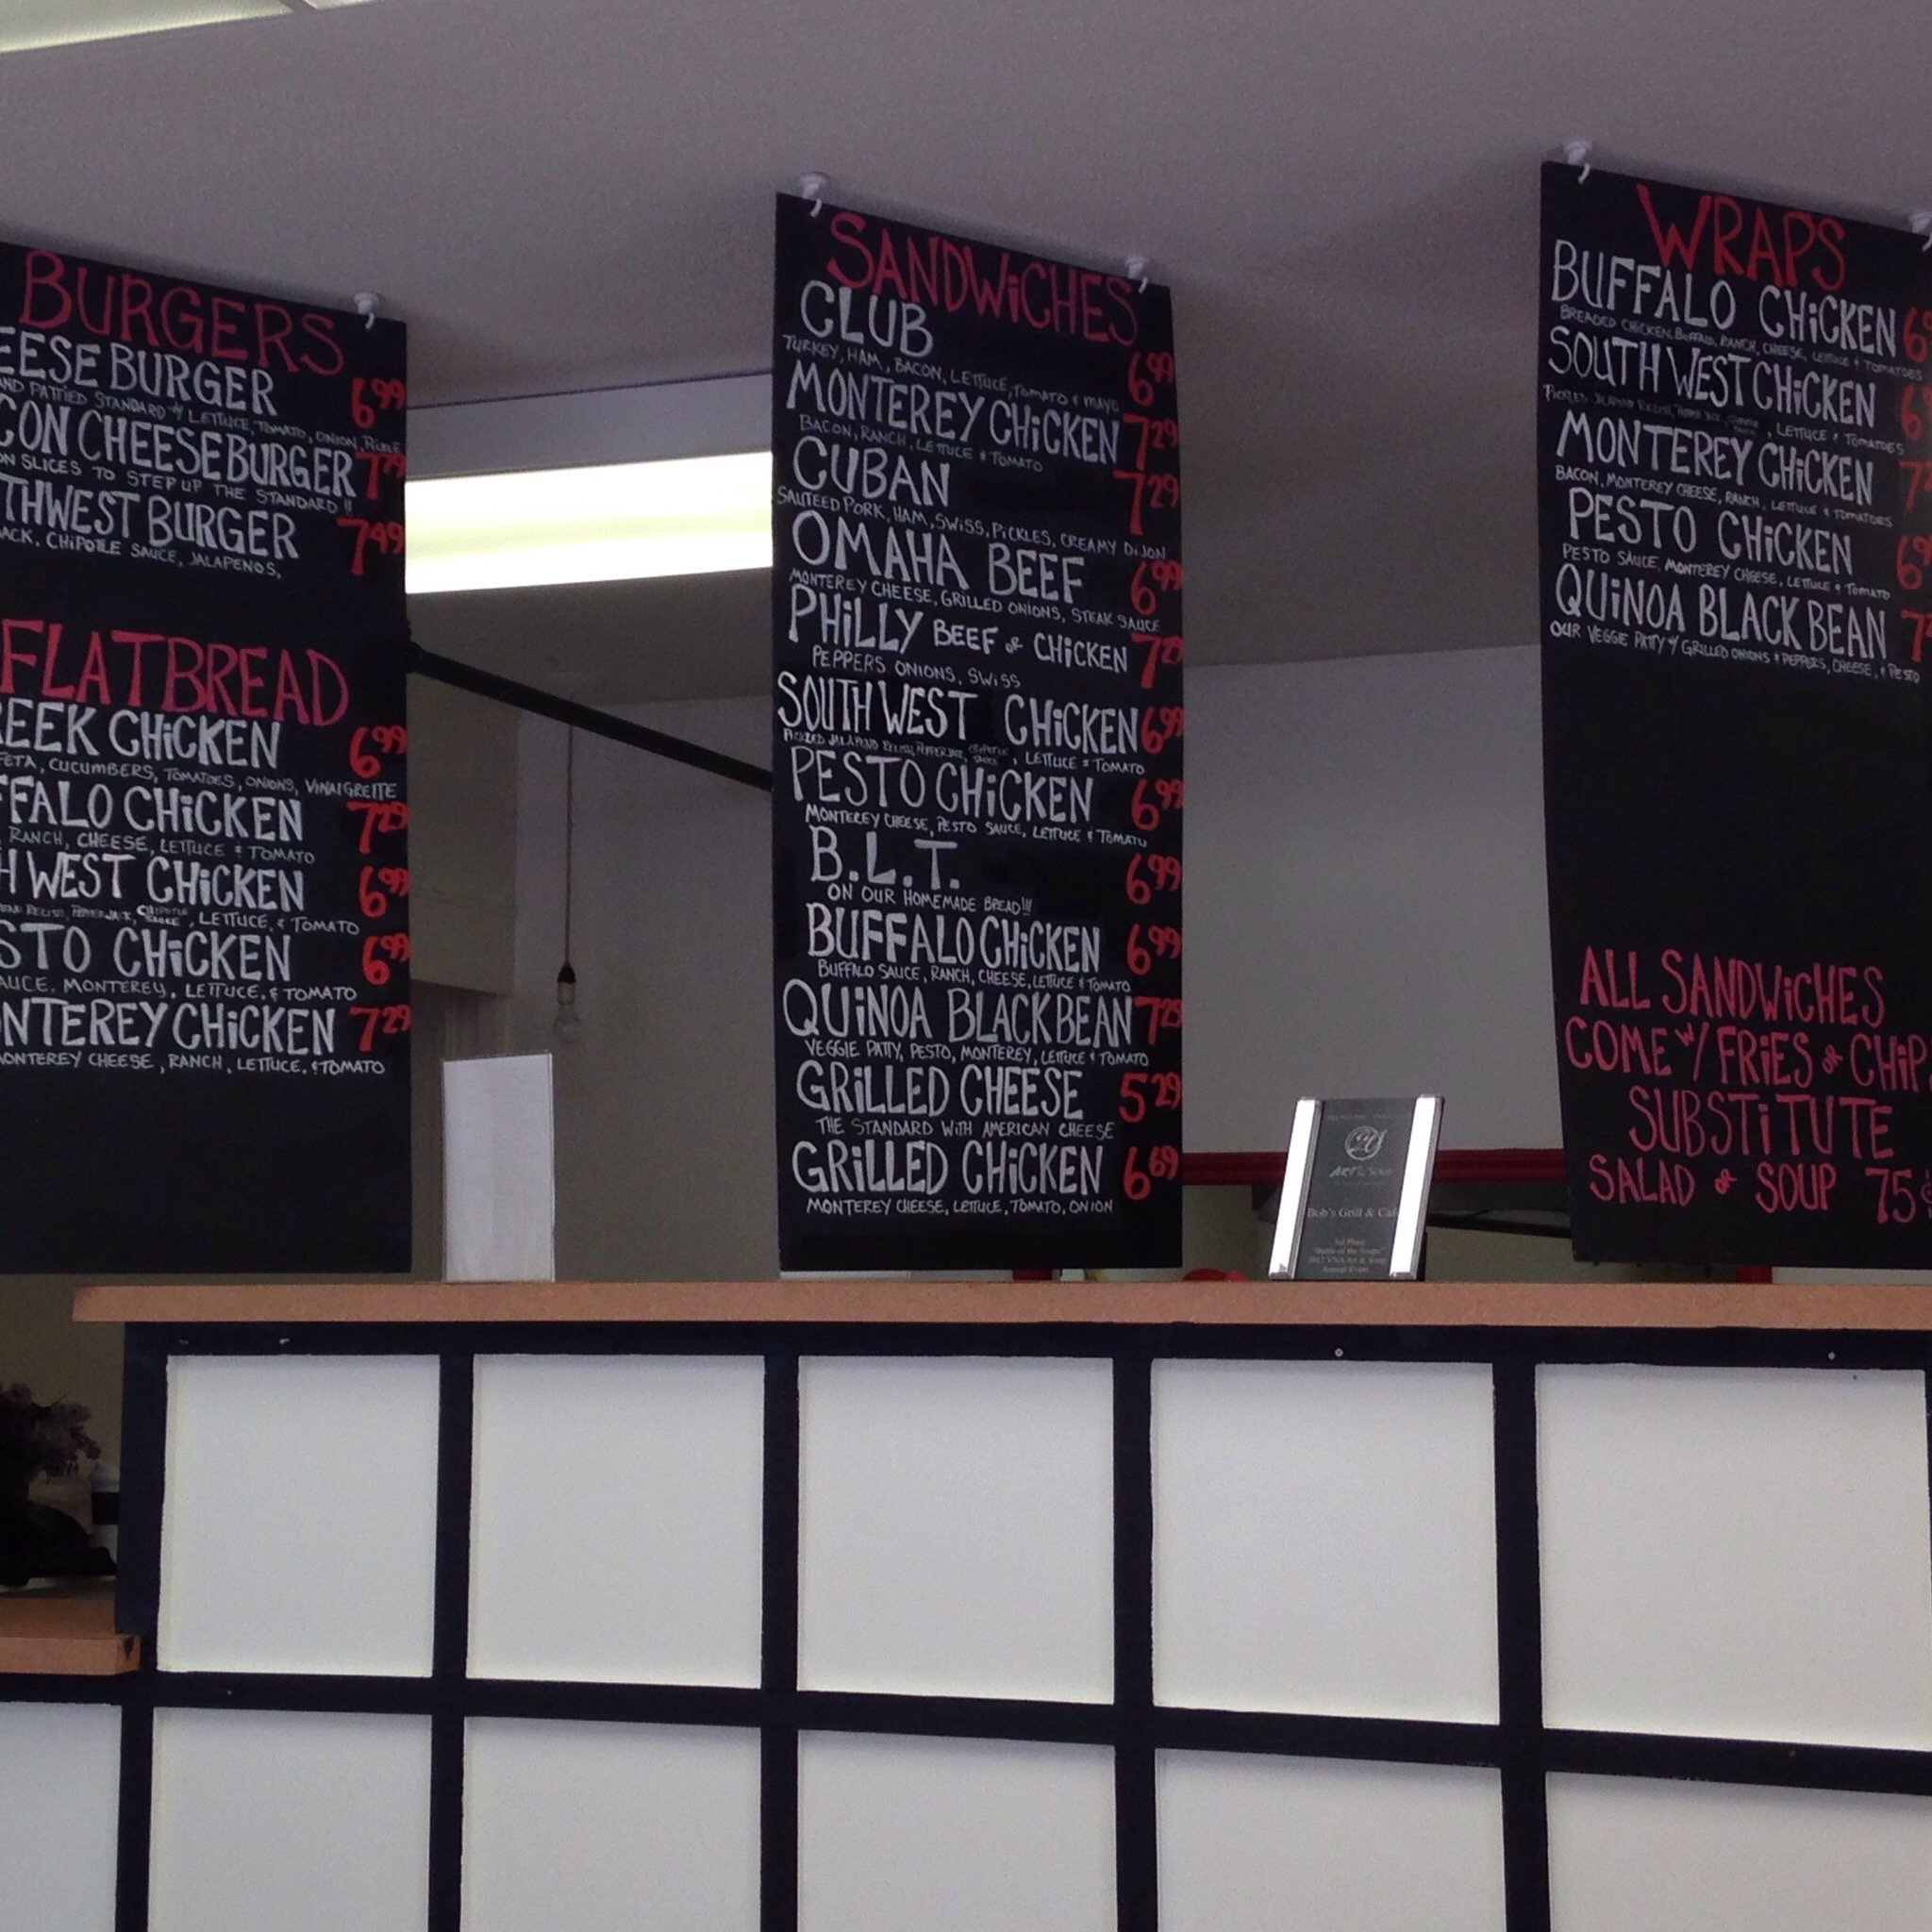 BURGERS
EESE BURGER 6.99
ND PATTIED STANDARD W/ LETTUCE, TOMATO, ONION, PICKLE
CON CHEESEBURGER
ON SLICES TO STEP UP THE STANDARD!!
THWEST BURGER 7.49
ACK, CHIPOTLE SAUCE, JALAPENOS,
FLATBREAD
REEK CHICKEN 6.99
FETA, CUCUMBERS, TOMATOES, ONIONS, VINAIGRETTE
FFALO CHICKEN 7.29
RANCH, CHEESE, LETTUCE & TOMATO
H WEST CHICKEN 6.99
RELISH, PEPPERJACK, CHIPOTLE SAUCE, LETTUCE, & TOMATO
STO CHICKEN 6.99
AUCE, MONTEREY, LETTUCE, & TOMATO
NTEREY CHICKEN 7.29
ONTEREY CHEESE, RANCH, LETTUCE, & TOMATO
SANDWiCHES
CLUB 6.99
TURKEY, HAM, BACON, LETTUCE, TOMATO & MAYO
MONTEREY CHiCKEN 7.29
BACON, RANCH, LETTUCE & TOMATO
CUBAN 7.29
SAUTEED PORK, HAM, SWISS, PICKLES, CREAMY DIJON
OMAHA BEEF 6.99
MONTEREY CHEESE, GRILLED ONIONS, STEAK SAUCE
PHiLLY BEEF or CHiCKEN 7.29
PEPPERS ONIONS, SWISS
SOUTH WEST CHiCKEN 6.99
PICKLED JALAPENO RELISH, PEPPERJACK, CHIPOTLE SAUCE, LETTUCE & TOMATO
PESTO CHiCKEN 6.99
MONTEREY CHEESE, PESTO SAUCE, LETTUCE & TOMATO
B.L.T. 6.99
ON OUR HOMEMADE BREAD!!!
BUFFALO CHiCKEN 6.99
BUFFALO SAUCE, RANCH, CHEESE, LETTUCE & TOMATO
QUiNOA BLACK BEAN 7.29
VEGGIE PATTY, PESTO, MONTEREY, LETTUCE & TOMATO
GRiLLED CHEESE 5.29
THE STANDARD WITH AMERICAN CHEESE
GRiLLED CHiCKEN 6.69
MONTEREY CHEESE, LETTUCE, TOMATO, ONION
WRAPS
BUFFALO CHiCKEN 6
BREADED CHICKEN, BUFFALO, RANCH, CHEESE, LETTUCE & TOMATOES
SOUTH WEST CHiCKEN 6
PICKLED JALAPENO RELISH, LETTUCE & TOMATOES
MONTEREY CHiCKEN 7
BACON, MONTEREY CHEESE, RANCH, LETTUCE & TOMATOES
PESTO CHiCKEN 6
PESTO SAUCE, MONTEREY CHEESE, LETTUCE & TOMATO
QUiNOA BLACK BEAN 7
OUR VEGGIE PATTY W/ GRILLED ONIONS & PEPPERS, CHEESE, & PESTO
ALL SANDWiCHES
COME W/ FRiES or CHiP
SUBSTiTUTE
SALAD or SOUP 75¢
ART & Soup
Bob's Grill & Cafe
3rd Place
"Battle of the Soups"
2012 VNA Art & Soup
Annual Event